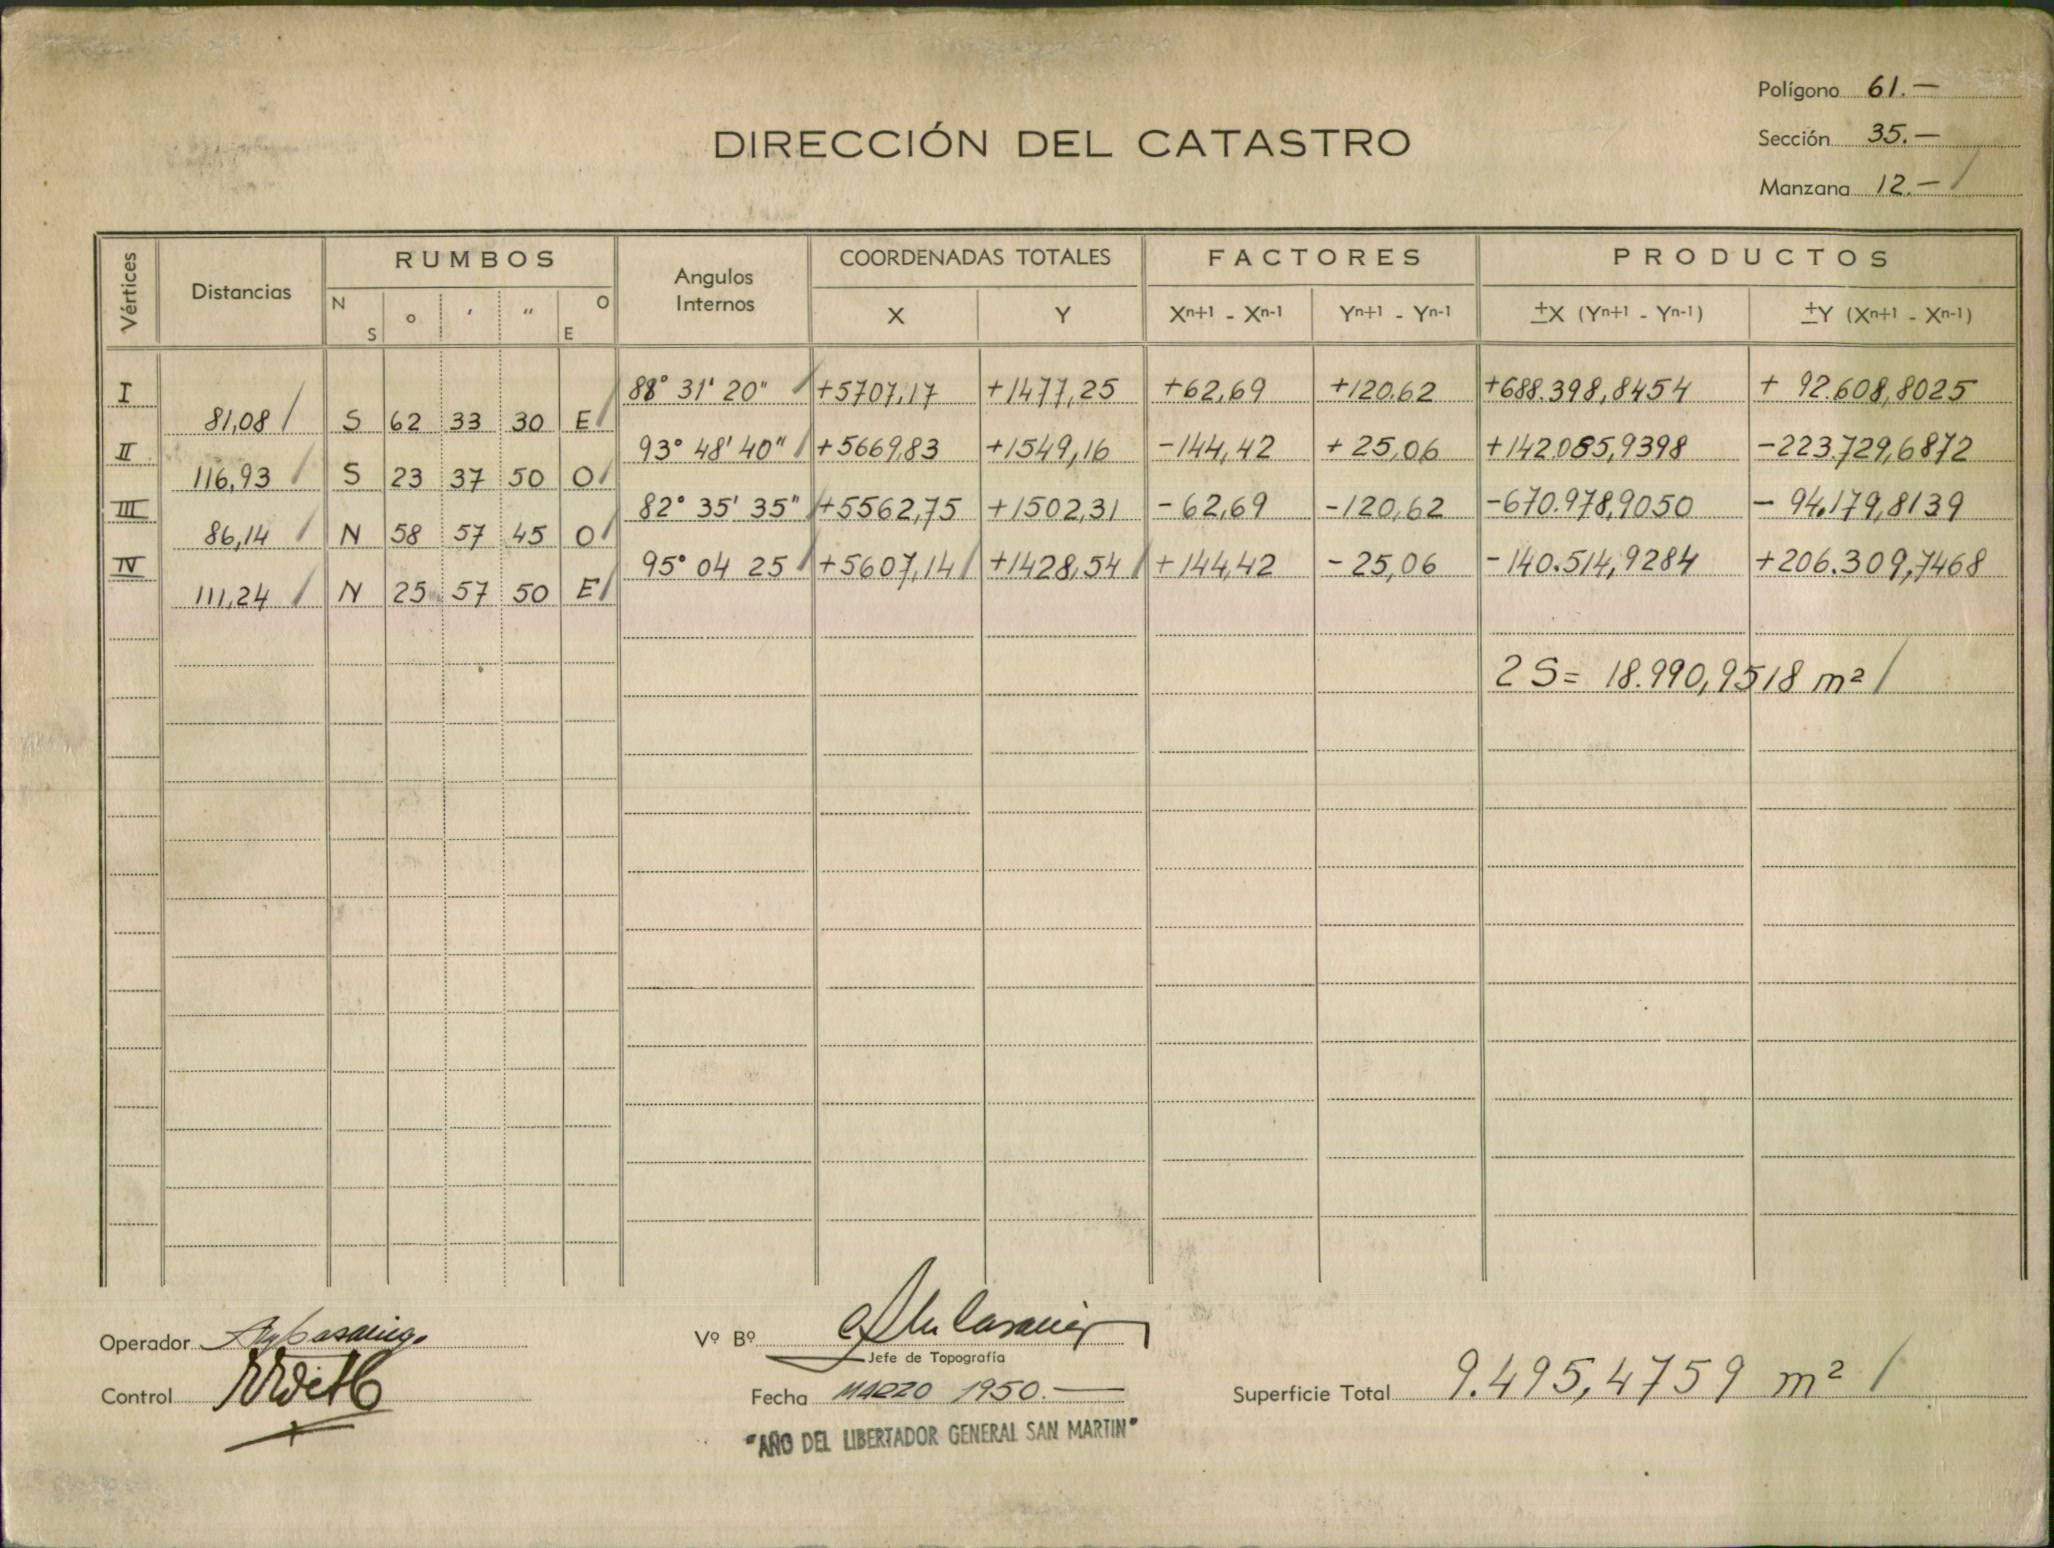 Polígono 61.—
DIRECCIÓN DEL CATASTRO
Sección 35.—
Manzana 12.— /
Vértices Distancias RUMBOS Angulos Internos COORDENADAS TOTALES FACTORES PRODUCTOS
N S ° ' " O E X Y Xn+1 - Xn-1 Yn+1 - Yn-1 ±X (Yn+1 - Yn-1) ±Y (Xn+1 - Xn-1)
I 88° 31' 20" +5707,17 +1477,25 +62,69 +120,62 +688.398,8454 + 92.608,8025
81,08 S 62 33 30 E
II 93° 48' 40" +5669,83 +1549,16 -144,42 + 25,06 +142.085,9398 -223.729,6872
116,93 S 23 37 50 O
III 82° 35' 35" +5562,75 +1502,31 - 62,69 -120,62 -670.978,9050 - 94.179,8139
86,14 N 58 57 45 O
IV 95° 04 25 +5607,14 +1428,54 +144,42 - 25,06 -140.514,9284 +206.309,7468
111,24 N 25 57 50 E
2 S = 18.990,9518 m² /
Operador
Vº Bº
Jefe de Topografía
Control
Fecha MARZO 1950.—
Superficie Total 9.495,4759 m² /
"AÑO DEL LIBERTADOR GENERAL SAN MARTIN"